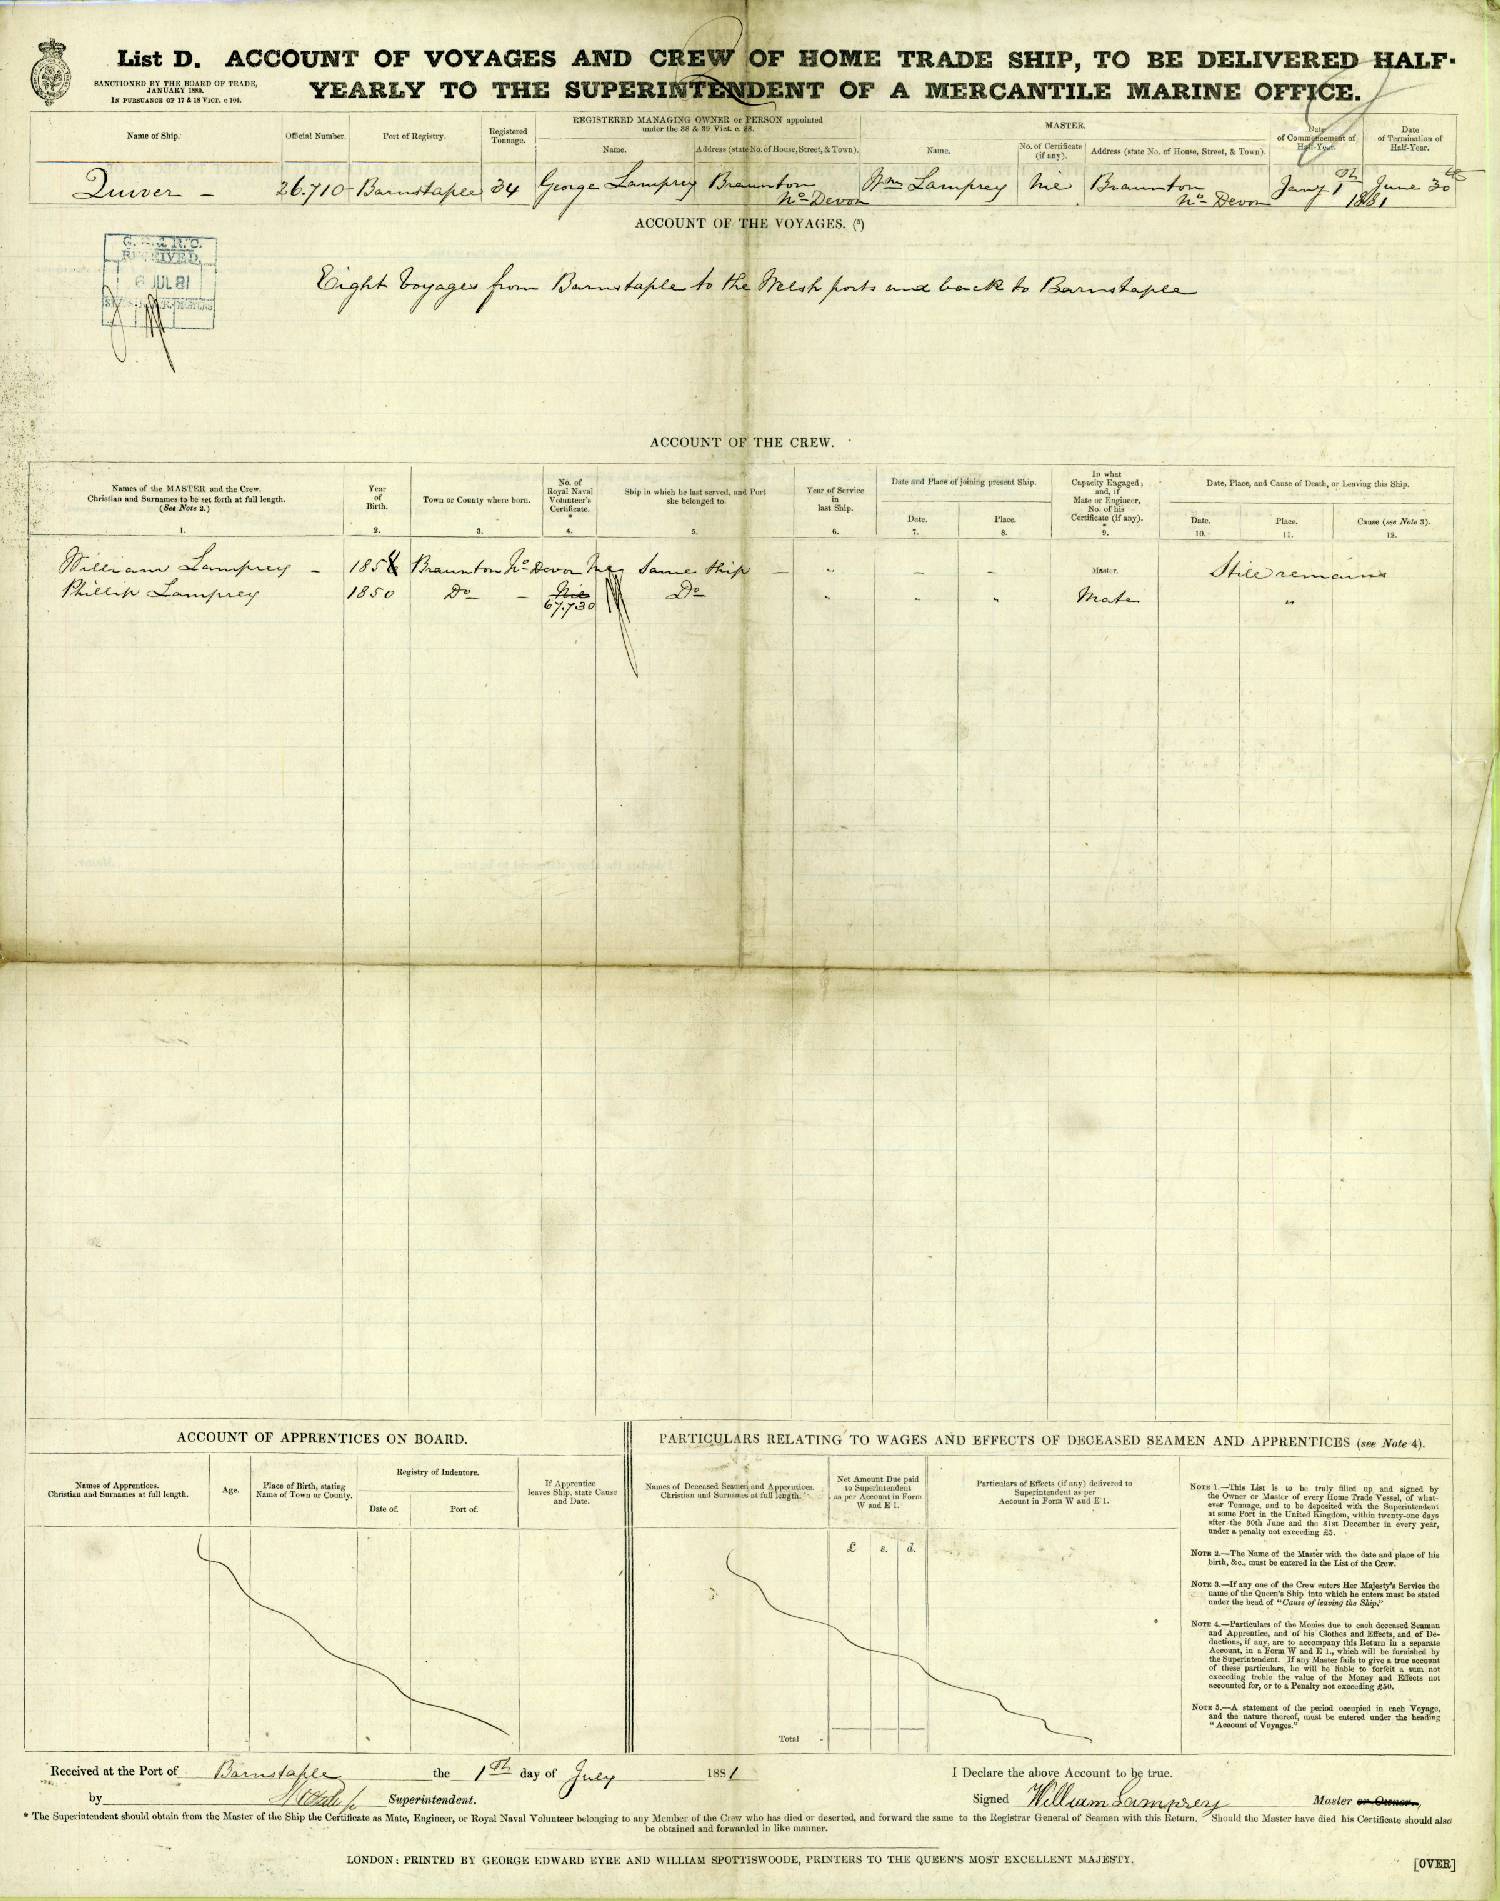 List D. ACCOUNT OF VOYAGES AND CREW OF HOME TRADE SHIP, TO BE DELIVERED HALF-
YEARLY TO THE SUPERINTENDENT OF A MERCANTILE MARINE OFFICE.
SANCTIONED BY THE BOARD OF TRADE,
JANUARY 1880.
IN PURSUANCE OF 17 & 18 VICT. c 104.
Name of Ship.
Official Number.
Port of Registry.
Registered Tonnage.
REGISTERED MANAGING OWNER or PERSON appointed
under the 38 & 39 Vict. c. 88.
Name.
Address (state No. of House, Street, & Town).
MASTER.
Name.
No. of Certificate (if any).
Address (state No. of House, Street, & Town).
Date of Commencement of Half-Year.
Date of Termination of Half-Year.
Quiver - 26.710 Barnstaple 34 George Lamprey Braunton No Devon Wm Lamprey Nil Braunton No Devon Jany 1th June 30th 1881
ACCOUNT OF THE VOYAGES. (5)
RECEIVED
6 JUL 81
Eight Voyages from Barnstaple to the Welsh ports and back to Barnstaple
ACCOUNT OF THE CREW.
Names of the MASTER and the Crew.
Christian and Surnames to be set forth at full length.
(See Note 2.)
1.
Year of Birth.
2.
Town or County where born.
3.
No. of Royal Naval Volunteer's Certificate.
*
4.
Ship in which he last served, and Port she belonged to.
5.
Year of Service in last Ship.
6.
Date and Place of joining present Ship.
Date.
7.
Place.
8.
In what Capacity Engaged; and, if Mate or Engineer, No. of his Certificate (if any).
*
9.
Date, Place, and Cause of Death, or Leaving this Ship.
Date.
10.
Place.
11.
Cause (see Note 3).
12.
William Lamprey - 1854 Braunton No Devon Nil Same Ship - " - - Master. Still remains
Phillip Lamprey 1850 Do - Nil Do " " " Mate "
67.730
ACCOUNT OF APPRENTICES ON BOARD.
Names of Apprentices.
Christian and Surnames at full length.
Age.
Place of Birth, stating Name of Town or County.
Registry of Indenture.
Date of.
Port of.
If Apprentice leaves Ship, state Cause and Date.
PARTICULARS RELATING TO WAGES AND EFFECTS OF DECEASED SEAMEN AND APPRENTICES (see Note 4).
Names of Deceased Seamen and Apprentices.
Christian and Surnames at full length.
Net Amount Due paid to Superintendent as per Account in Form W and E 1.
£ s. d.
Particulars of Effects (if any) delivered to
Superintendent as per
Account in Form W and E 1.
Total
NOTE 1.—This List is to be truly filled up, and signed by
the Owner or Master of every Home Trade Vessel, of what-
ever Tonnage, and to be deposited with the Superintendent
at some Port in the United Kingdom, within twenty-one days
after the 30th June and the 31st December in every year,
under a penalty not exceeding £5.
NOTE 2.—The Name of the Master with the date and place of his
birth, &c., must be entered in the List of the Crew.
NOTE 3.—If any one of the Crew enters Her Majesty's Service the
name of the Queen's Ship into which he enters must be stated
under the head of "Cause of leaving the Ship."
NOTE 4.—Particulars of the Monies due to each deceased Seaman
and Apprentice, and of his Clothes and Effects, and of De-
ductions, if any, are to accompany this Return in a separate
Account, in a Form W and E 1., which will be furnished by
the Superintendent. If any Master fails to give a true account
of these particulars, he will be liable to forfeit a sum not
exceeding treble the value of the Money and Effects not
accounted for, or to a Penalty not exceeding £50.
NOTE 5.—A statement of the period occupied in each Voyage,
and the nature thereof, must be entered under the heading
"Account of Voyages."
Received at the Port of Barnstaple the 1th day of July 1881
I Declare the above Account to be true.
by Superintendent.
Signed William Lamprey Master or Owner.
* The Superintendent should obtain from the Master of the Ship the Certificate as Mate, Engineer, or Royal Naval Volunteer belonging to any Member of the Crew who has died or deserted, and forward the same to the Registrar General of Seamen with this Return. Should the Master have died his Certificate should also
be obtained and forwarded in like manner.
LONDON: PRINTED BY GEORGE EDWARD EYRE AND WILLIAM SPOTTISWOODE, PRINTERS TO THE QUEEN'S MOST EXCELLENT MAJESTY.
[OVER]